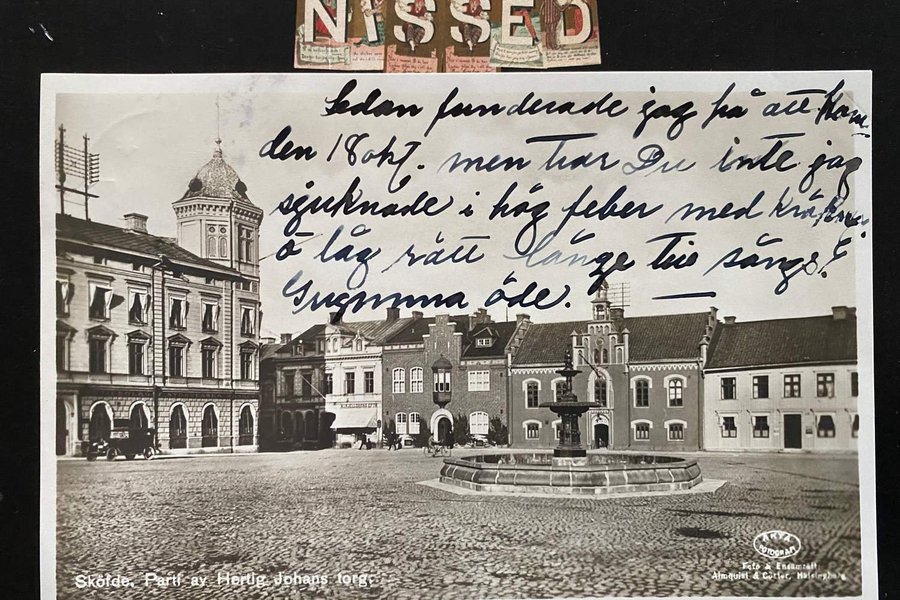 NISSED
Sedan funderade jag på att kom.
den 18 okt. men tror Du inte jag
sjuknade i hög feber med
å låg rätt länge till sängs!
Grymma öde.
Skövde. Parti av Hertig Johans torg.
ÄKTA
FOTOGRAFI
Foto & Ensamrätt
Almquist & Cöster, Helsingborg